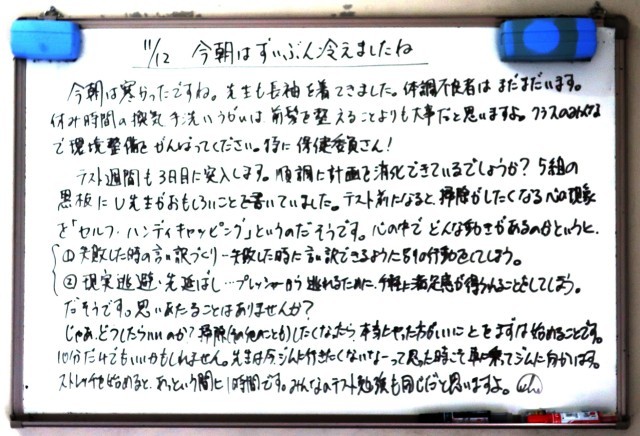 11/12 今朝はずいぶん冷えましたね
今朝は寒かったですね。先生も長袖を着てきました。体調不良者はまだまだいます。
休み時間の換気手洗いうがいは前髪を整えることよりも大事だと思いますよ。クラスのみんな
で環境整備をがんばってください。特に保健委員さん！
テスト週間も3日目に突入します。順調に計画を消化できているでしょうか？5組の
黒板にU先生がおもしろいことを書いていました。テスト前になると、掃除がしたくなる心の現象
を「セルフ・ハンディキャッピング」というのだそうです。心の中でどんな動きがあるのかというと、
①失敗した時の言い訳づくり…失敗した時に言い訳できるように別の行動をしてしまう。
②現実逃避・先延ばし…プレッシャーから逃れるために、手軽に満足感が得られることをしてしまう。
だそうです。思いあたることはありませんか？
じゃあ、どうしたらいいのか？掃除(その他のことも)したくなったら、本当にやった方がいいことをまずは始めることです。
10分だけでもいいかもしれません。先生は今ジムに行きたくないなーって思った時こそ車に乗ってジムに向かいます。
ストレッチを始めると、あっという間に1時間です。みんなのテスト勉強も同じだと思いますよ。